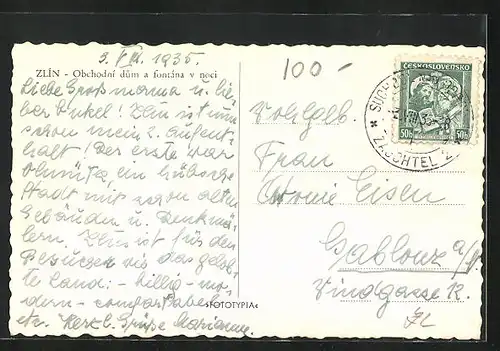 3. VIII. 1935.
ZLÍN - Obchodní dům a fontána v noci
Liebe Grossmama u. lie-
ber Onkel! Zlín ist nun
schon mein 2. Aufent-
halt! Der erste war
Olmütz, ein hübsche
Stadt mit schon alten
Gebäuden u. Denkmä-
lern. Zlín ist für den
Besucher wie das gelob-
te Land: - billig - mo-
dern - comfortabel
etc. Herzl. Grüsse Marianne.
»FOTOTYPIA«
100 -
ČESKOSLOVENSKO
50h 50h
SUCHDOL
ZAUCHTEL 2
Wohlgeb.
Frau
Eisen
Gablonz a/N.
Windgasse 12.